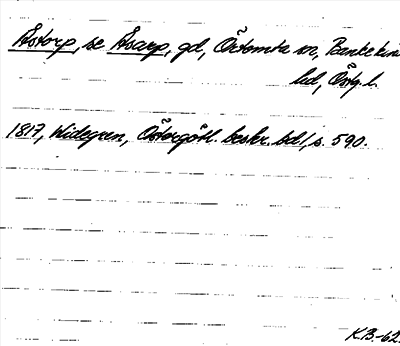 Åstorp, se Åsarp, gd, Örtomta sn, Bankekind
hd, Östg.l.
1817, Widegren, Östergötl. beskr. bd 1, s. 590.
K.B.-62.